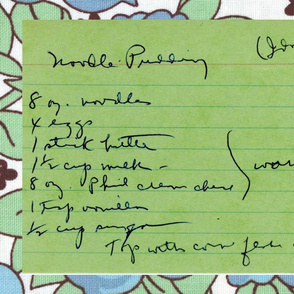 Noodle Pudding
8 oz. noodles
4 eggs
1 stick butter
1 1/2 cup milk -
8 oz Phil cream cheese
1 Tsp vanilla
1/2 cup sugar
Top with corn